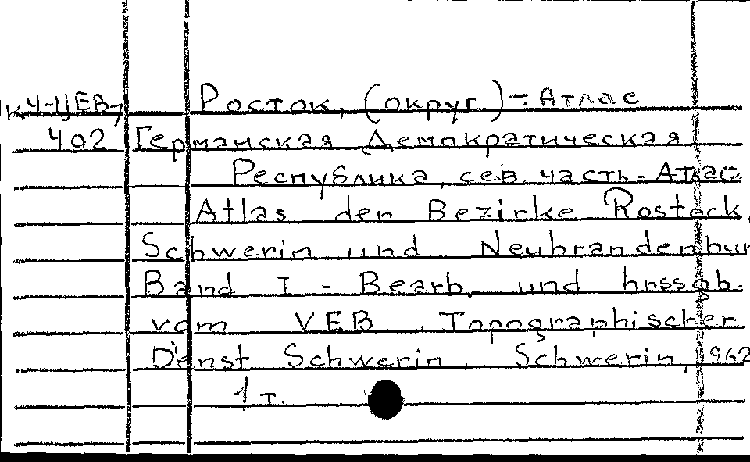 к4-ЦЕВ, Росток, (округ.) - Атлас
402 Германская Демократическая
Республика, сев. часть - Атлас
Atlas der Bezirke Rostock,
Schwerin und Neubrandenbur
Band I - Bearb. und hrsgb.
vom VEB Topographischer
Dienst Schwerin. Schwerin, 1962
1 т.